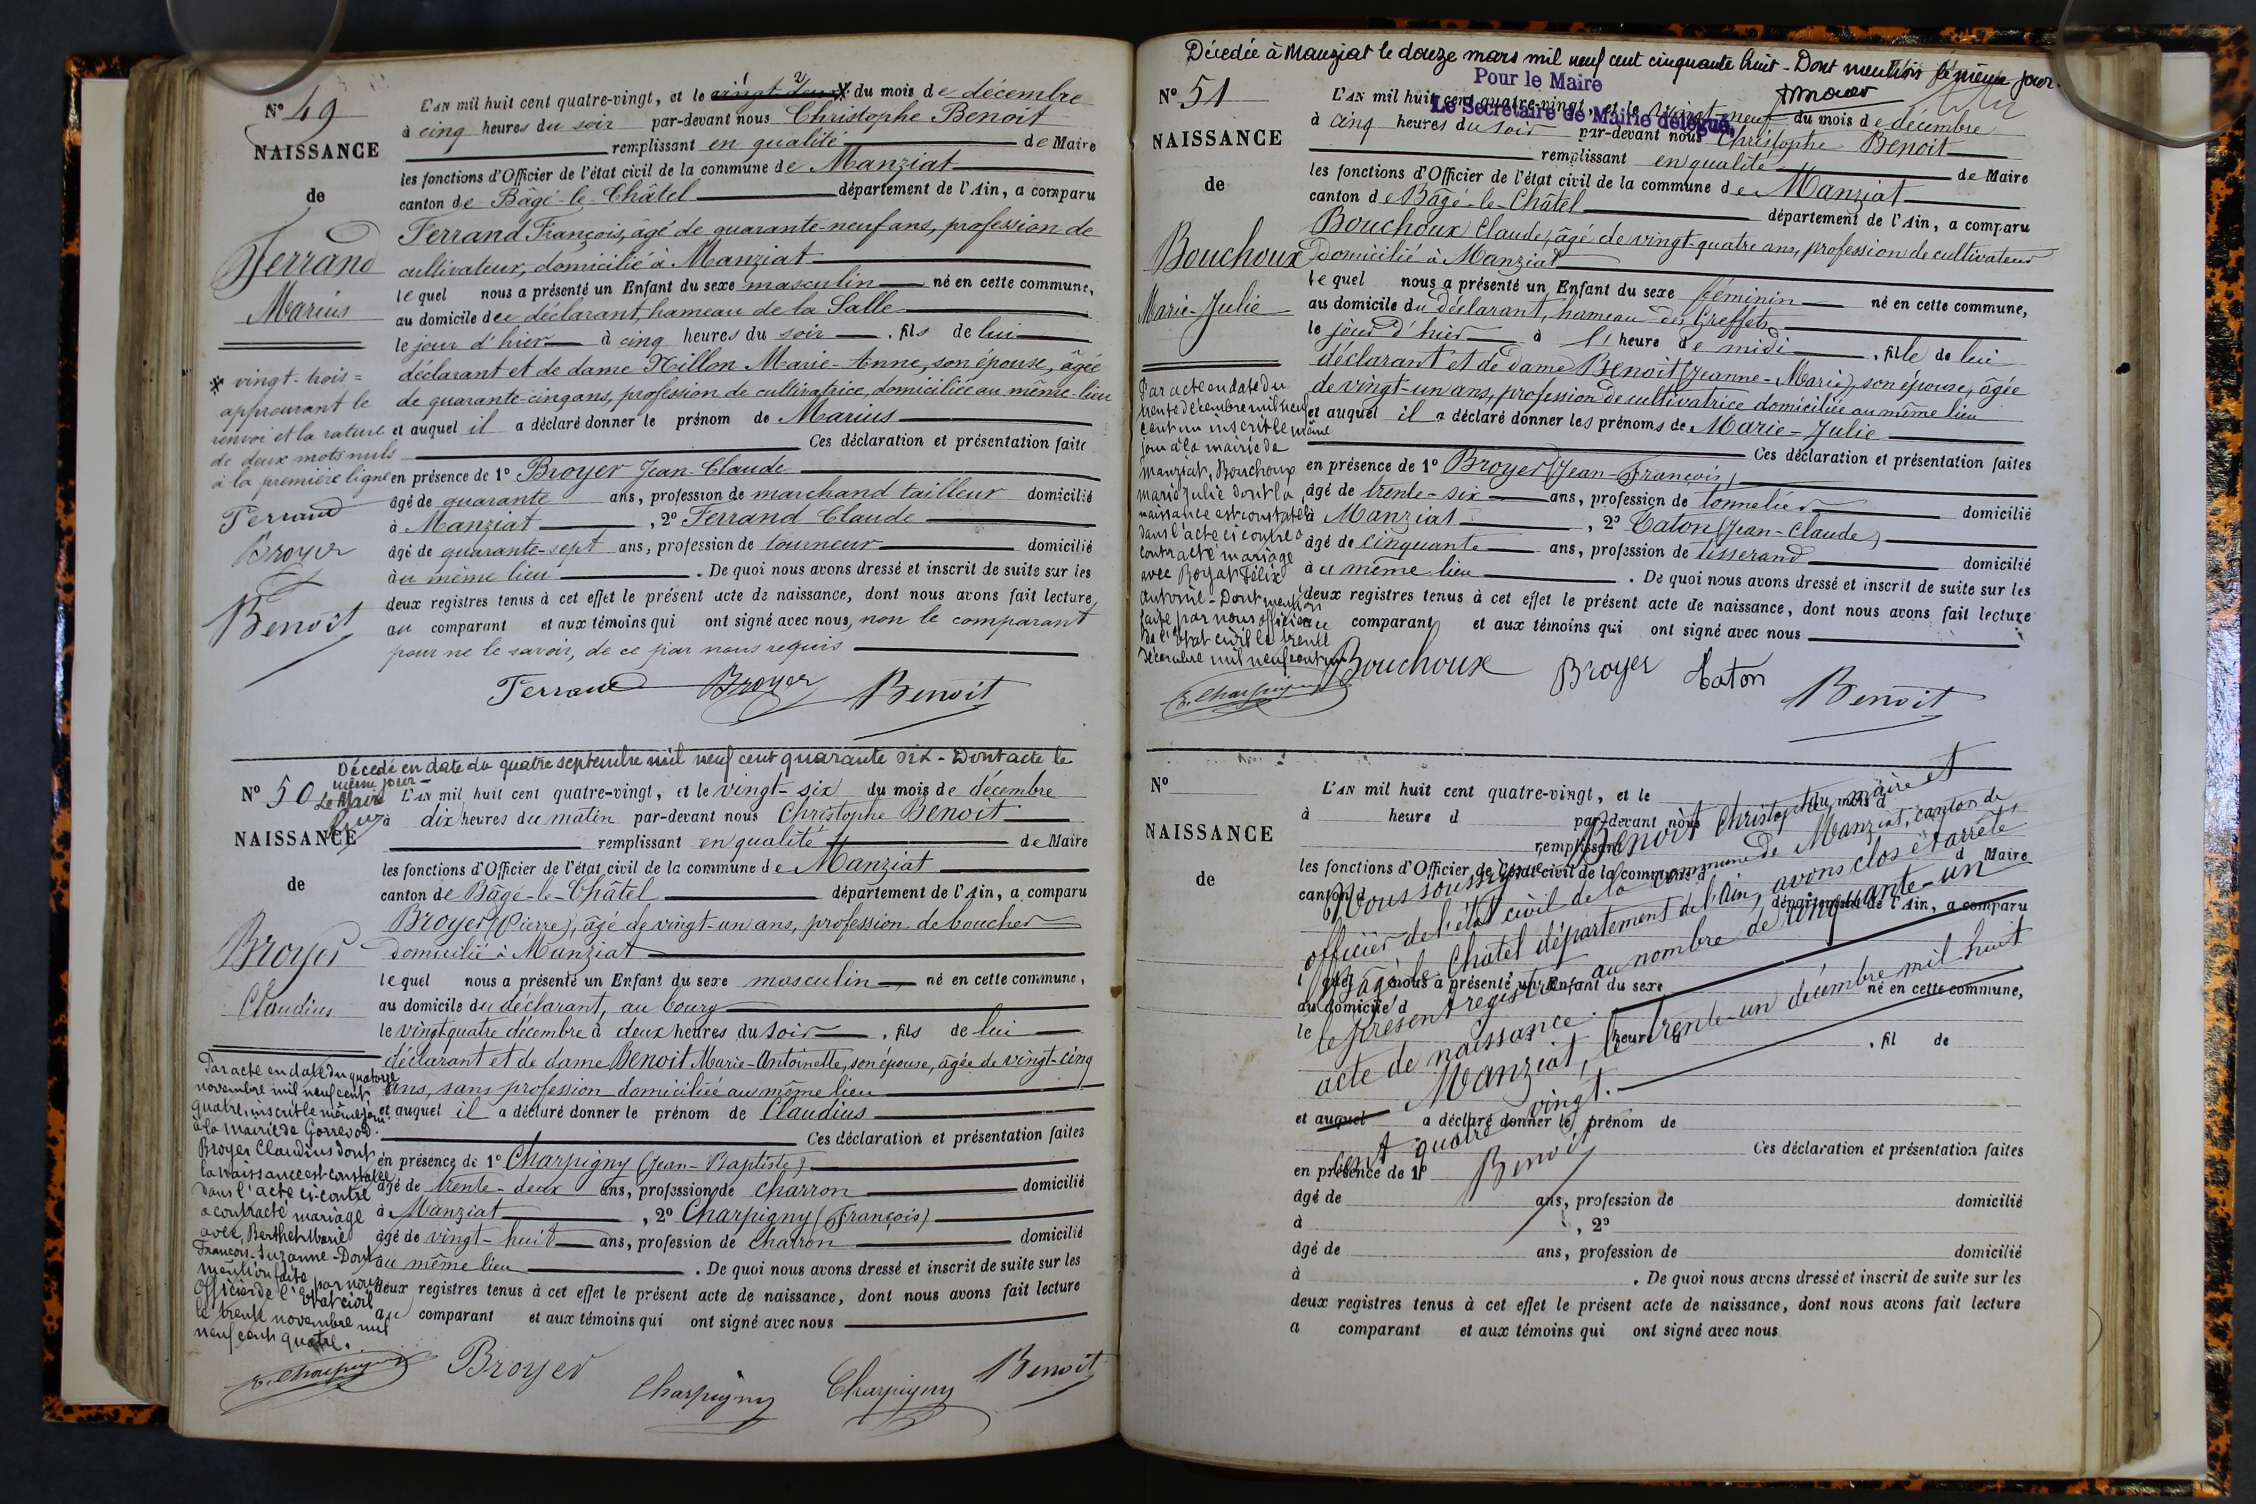 N° 49
NAISSANCE
de
Ferrand
Marius
* vingt-trois =
approuvant le
renvoi et la rature
de deux mots nuls
à la première ligne
Ferrand
Broyer
Benoit
L'AN mil huit cent quatre-vingt, et le vingt deux * du mois de décembre
à cinq heures du soir par-devant nous Christophe Benoit
remplissant en qualité de Maire
les fonctions d'Officier de l'état civil de la commune de Manziat
canton de Bâgé-le-Châtel département de l'Ain, a comparu
Ferrand François, âgé de quarante-neuf ans, profession de
cultivateur, domicilié à Manziat
lequel nous a présenté un Enfant du sexe masculin né en cette commune,
au domicile de ce déclarant, hameau de la Salle
le jour d'hier à cinq heures du soir, fils de lui
déclarant et de dame Nillon Marie-Anne, son épouse, âgée
de quarante-cinq ans, profession de cultivatrice, domiciliée au même-lieu
et auquel il a déclaré donner le prénom de Marius
Ces déclaration et présentation faite
en présence de 1° Broyer Jean-Claude
âgé de quarante ans, profession de marchand tailleur domicilié
à Manziat, 2° Ferrand Claude
âgé de quarante-sept ans, profession de tourneur domicilié
au même lieu. De quoi nous avons dressé et inscrit de suite sur les
deux registres tenus à cet effet le présent acte de naissance, dont nous avons fait lecture
au comparant et aux témoins qui ont signé avec nous, non le comparant
pour ne le savoir, de ce par nous requis
Ferrand Broyer Benoit
Décédé en date du quatre septembre mil neuf cent quarante dix - Dont acte le
même jour -
Le Maire
N° 50
NAISSANCE
de
Broyer
Claudius
Par acte en date du quatorze
novembre mil neuf cent
quatre, inscrit le même jour
à la mairie de Gorrevod
Broyer Claudius dont
la naissance est constatée
dans l'acte ci-contre
a contracté mariage
avec Berthet Marie
François-Suzanne - Dont
mention faite par nous
Officier de l'état civil
le trente novembre mil
neuf cent quatre.
L'AN mil huit cent quatre-vingt, et le vingt-six du mois de décembre
à dix heures du matin par-devant nous Christophe Benoit
remplissant en qualité de Maire
les fonctions d'Officier de l'état civil de la commune de Manziat
canton de Bâgé-le-Châtel département de l'Ain, a comparu
Broyer (Pierre), âgé de vingt-un ans, profession de boucher
domicilié à Manziat
lequel nous a présenté un Enfant du sexe masculin né en cette commune,
au domicile du déclarant, au bourg
le vingt quatre décembre à deux heures du soir, fils de lui
déclarant et de dame Benoit Marie-Antoinette, son épouse, âgée de vingt-cinq
ans, sans profession domiciliée au même lieu
et auquel il a déclaré donner le prénom de Claudius
Ces déclaration et présentation faites
en présence de 1° Charpigny (Jean-Baptiste)
âgé de trente-deux ans, profession de charron domicilié
à Manziat, 2° Charpigny (François)
âgé de vingt-huit ans, profession de charron domicilié
au même lieu. De quoi nous avons dressé et inscrit de suite sur les
deux registres tenus à cet effet le présent acte de naissance, dont nous avons fait lecture
au comparant et aux témoins qui ont signé avec nous
Broyer Charpigny Charpigny Benoit
Décédée à Manziat le douze mars mil neuf cent cinquante huit - Dont mention le même jour.
Pour le Maire
Le Secrétaire de Mairie délégué,
N° 51
NAISSANCE
de
Bouchoux
Marie-Julie
Par acte en date du
trente décembre mil neuf
cent un inscrit le même
jour à la mairie de
Manziat, Bouchoux
Marie Julie dont la
naissance est constatée
dans l'acte ci contre a
contracté mariage
avec Boyat Félix
Antoine - Dont mention
faite par nous officier
de l'état civil le trente
décembre mil neuf cent un
L'AN mil huit cent quatre-vingt, et le vingt-neuf du mois de décembre
à cinq heures du soir par-devant nous Christophe Benoit
remplissant en qualité de Maire
les fonctions d'Officier de l'état civil de la commune de Manziat
canton de Bâgé-le-Châtel département de l'Ain, a comparu
Bouchoux Claude, âgé de vingt-quatre ans, profession de cultivateur
domicilié à Manziat
lequel nous a présenté un Enfant du sexe féminin né en cette commune,
au domicile du déclarant, hameau des Greffets
le jour d'hier à l' heure de midi, fille de lui
déclarant et de dame Benoit (Jeanne-Marie), son épouse, âgée
de vingt-un ans, profession de cultivatrice domiciliée au même lieu
et auquel il a déclaré donner les prénoms de Marie-Julie
Ces déclaration et présentation faites
en présence de 1° Broyer (Jean-François)
âgé de trente-six ans, profession de tonnelier domicilié
à Manziat, 2° Caton (Jean-Claude)
âgé de cinquante ans, profession de tisserand domicilié
au même lieu. De quoi nous avons dressé et inscrit de suite sur les
deux registres tenus à cet effet le présent acte de naissance, dont nous avons fait lecture
au comparant et aux témoins qui ont signé avec nous
Bouchoux Broyer Caton Benoit
N°
NAISSANCE
de
L'AN mil huit cent quatre-vingt, et le du mois d
à heure d par-devant nous
remplissant
d Maire
les fonctions d'Officier de l'état civil de la commune d
canton d département de l'Ain, a comparu
l quel nous a présenté un Enfant du sexe né en cette commune,
au domicile d
le heure d, fil de
et auquel a déclaré donner le prénom de
Ces déclaration et présentation faites
en présence de 1°
âgé de ans, profession de domicilié
à, 2°
âgé de ans, profession de domicilié
à. De quoi nous avons dressé et inscrit de suite sur les
deux registres tenus à cet effet le présent acte de naissance, dont nous avons fait lecture
a comparant et aux témoins qui ont signé avec nous
Nous soussigné Benoit Christophe maire et
officier de l'état civil de la commune de Manziat, canton de
Bâgé-le-Châtel département de l'Ain, avons clos et arrêté
le présent registre au nombre de cinquante-un
acte de naissance.
Manziat, le trente-un décembre mil huit
cent quatre vingt.
Benoit